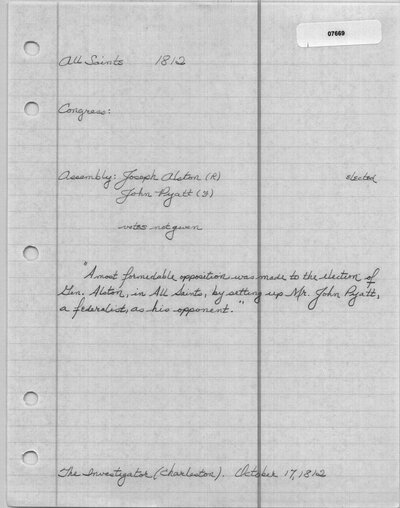 07669
All Saints 1812
Congress:
Assembly: Joseph Alston (R) elected
John Pyatt (F)
votes not given
"A most formedable opposition was made to the election of
Gen. Alston, in All Saints, by setting up Mr. John Pyatt,
a federalist, as his opponent."
The Investigator (Charleston). October 17, 1812